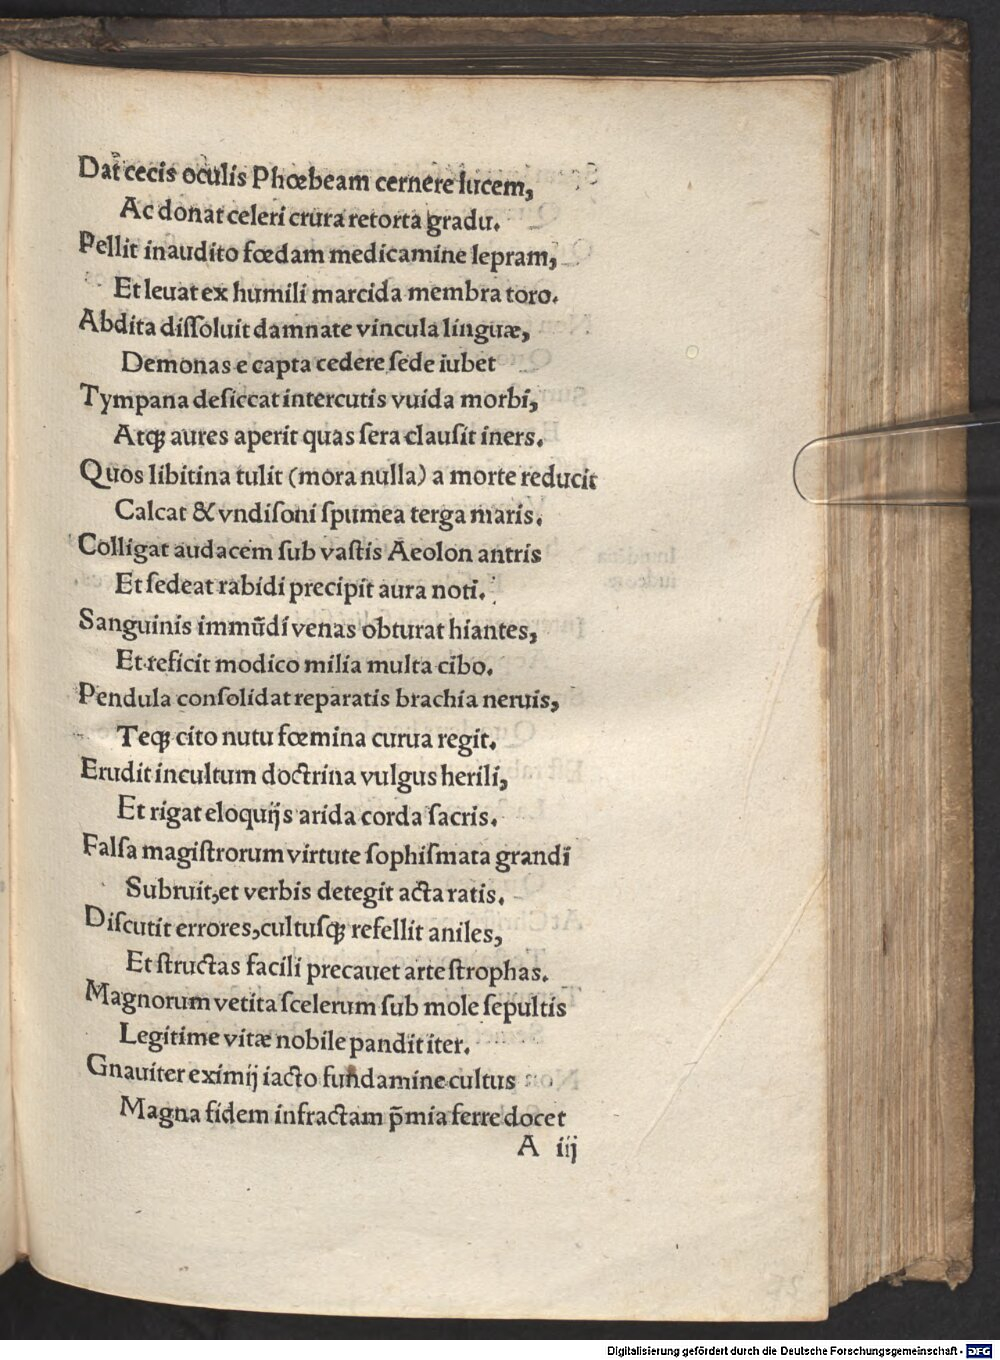 Dat cecis oculis Phœbeam cernere lucem,
Ac donat celeri crura retorta gradu.
Pellit inaudito fœdam medicamine lepram,
Et leuat ex humili marcida membra toro.
Abdita diſſoluit damnate vincula linguæ,
Demonas e capta cedere ſede iubet
Tympana deſiccat intercutis vuida morbi,
Atqꝫ aures aperit quas ſera clauſit iners.
Quos libitina tulit (mora nulla) a morte reducit
Calcat & vndiſoni ſpumea terga maris.
Colligat audacem ſub vaſtis Aeolon antris
Et ſedeat rabidi precipit aura noti.
Sanguinis immūdi venas obturat hiantes,
Et reficit modico milia multa cibo.
Pendula conſolidat reparatis brachia neruis,
Teqꝫ cito nutu fœmina curua regit.
Erudit incultum doctrina vulgus herili,
Et rigat eloquijs arida corda ſacris.
Falſa magiſtrorum virtute ſophiſmata grandi
Subruit, et verbis detegit acta ratis.
Diſcutit errores, cultuſqꝫ refellit aniles,
Et ſtructas facili precauet arte ſtrophas.
Magnorum vetita ſcelerum ſub mole ſepultis
Legitime vitæ nobile pandit iter.
Gnauiter eximij iacto fundamine cultus
Magna fidem infractam p̄mia ferre docet
A iij
Digitalisierung gefördert durch die Deutsche Forschungsgemeinschaft - DFG